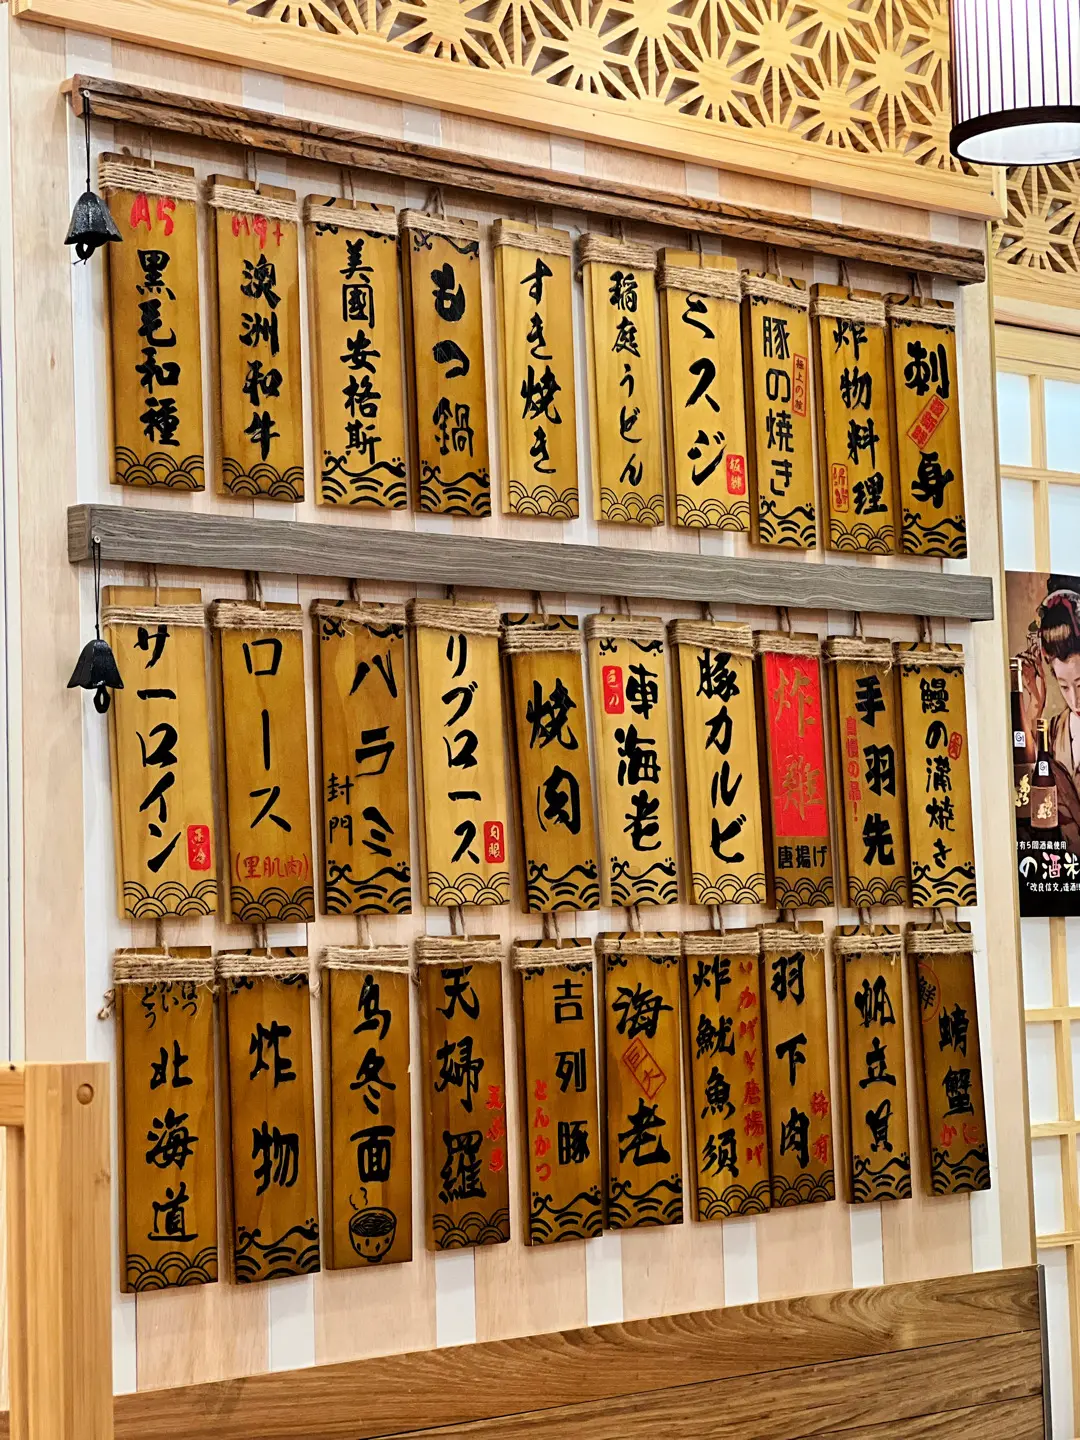 A5
黒毛和種
澳洲和牛
美國安格斯
もつ鍋
すき焼き
稲庭うどん
ミスジ
板腱
豚の焼き
極上の味
炸物料理
刺身
サーロイン
ロース
(里肌肉)
ハラミ
封門
リブロース
肋眼
焼肉
車海老
豚カルビ
炸雞
唐揚げ
手羽先
自慢の品!
鰻の蒲焼き
ほっかいどう
北海道
炸物
烏冬面
天婦羅
吉列豚
とんかつ
海老
巨大
炸魷魚須
いかげそ唐揚げ
羽下肉
稀有
帆立貝
鮮
螃蟹
かに
の酒米
「改良信交」